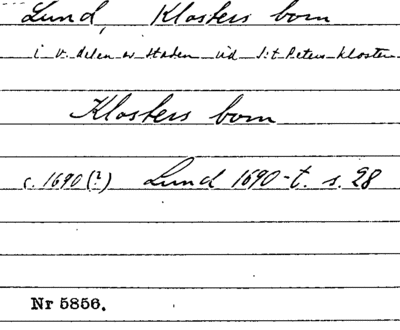 Lund, Klosters bom
i v. delen av staden vid S:t Peters kloster
Klosters bom
c. 1690 (?) Lund 1690-t. s. 28
Nr 5856.